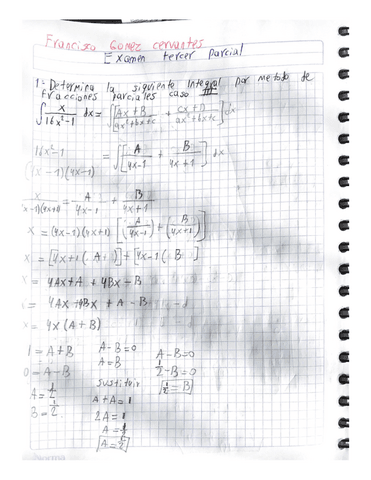 Francisco Gómez cervantes
Examen tercer parcial
1- Determina la siguiente integral por metodo de
fracciones parciales caso III
∫ x/(16x²-1) dx = ∫[(Ax+B)/(ax²+bx+c) + (cx+D)/(ax²+bx+c)] dx
16x²-1 = ∫[A/(4x-1) + B/(4x+1)] dx
x-1)(4x-1)
x/(x-1)(4x+1) = A/(4x-1) + B/(4x+1)
x = (4x-1)(4x+1) [A/(4x-1) + B/(4x+1)]
x = [4x+1( A )] + [4x-1( B )]
x = 4Ax+A + 4Bx-B
x = 4Ax+4Bx + A-B
x = 4x(A+B)
1 = A+B
0 = A-B
A = 1/2
B = 1/2
A-B=0
A=B
sustituir
A+A=1
2A=1
A=1/2
A=1/2
A-B=0
1/2-B=0
1/2=B